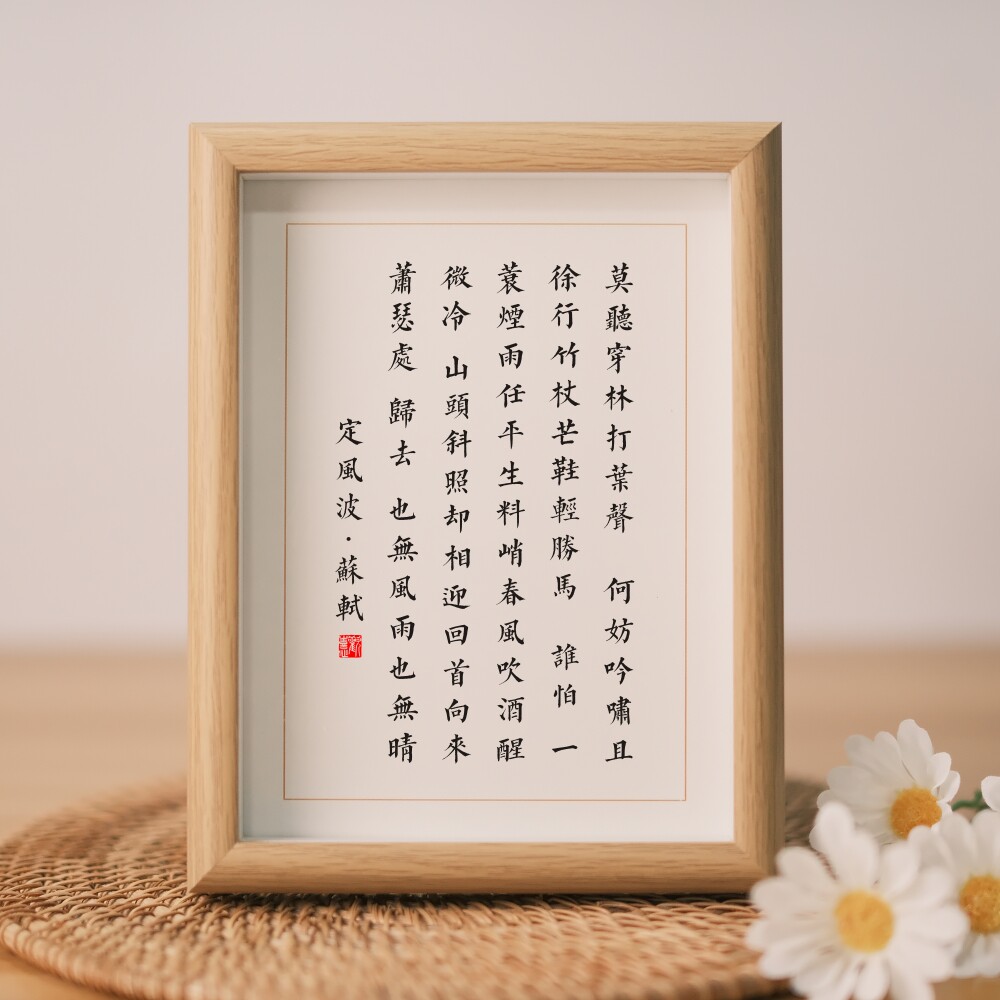 莫聽穿林打葉聲 何妨吟嘯且
徐行竹杖芒鞋輕勝馬 誰怕 一
蓑煙雨任平生料峭春風吹酒醒
微冷 山頭斜照却相迎回首向來
蕭瑟處 歸去 也無風雨也無晴
定風波·蘇軾